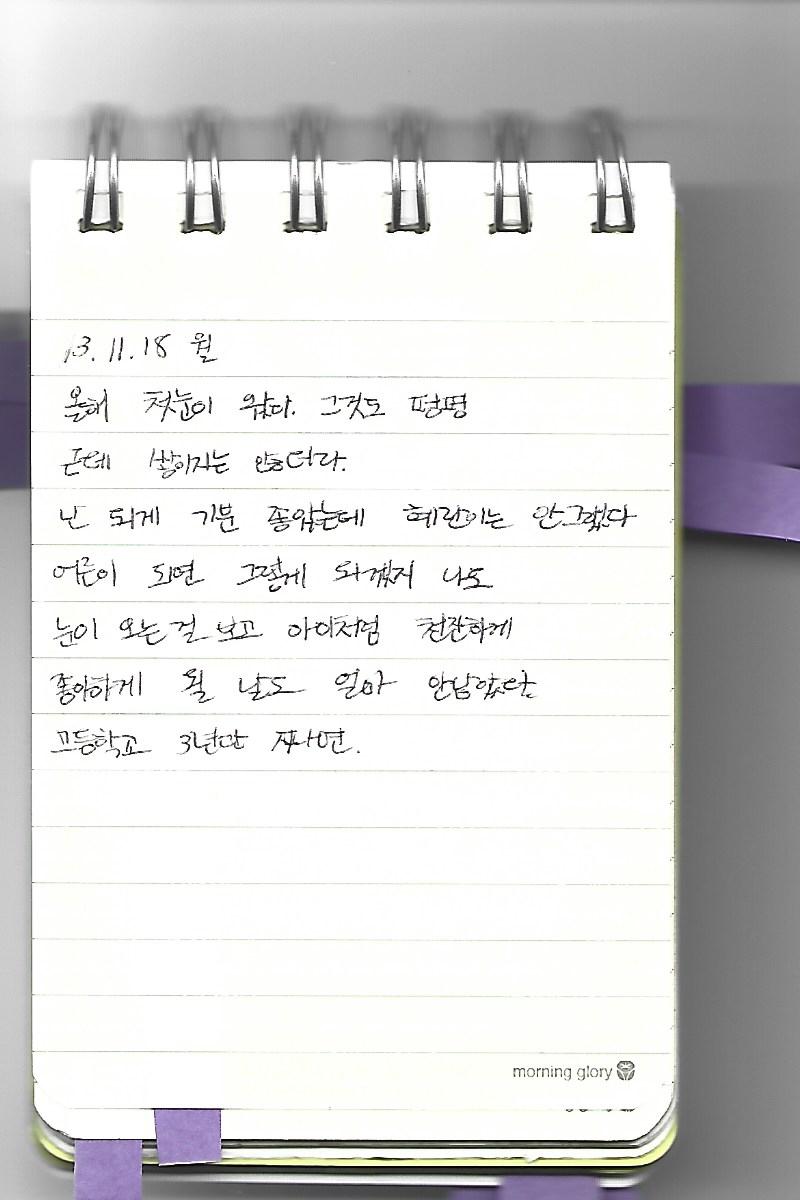 13.11.18 월
올해 첫눈이 왔다. 그것도 펑펑
근데 쌓이지는 않더라.
난 되게 기분 좋았는데 혜린이는 안그랬다
어른이 되면 그렇게 되겠지 나도
눈이 오는걸 보고 아이처럼 천진하게
좋아하게 될 날도 얼마 안남았단
고등학교 3년만 지나면.
morning glory